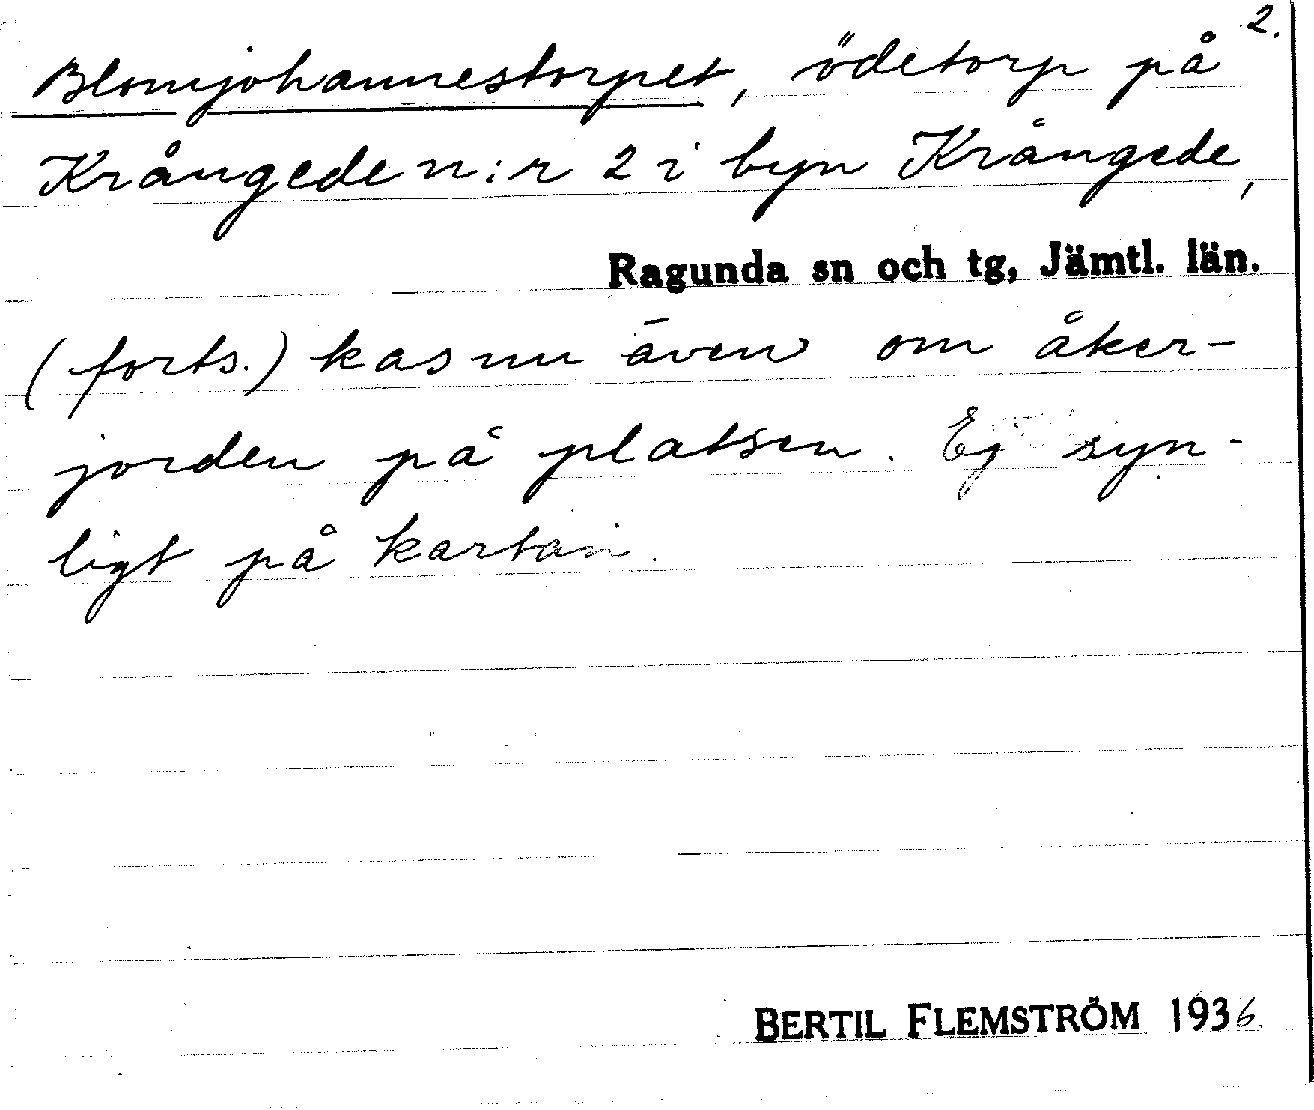 2.
Blomjohannestorpet, ödetorp på
Krångede n:r 2 i byn Krångede,
Ragunda sn och tg, Jämtl. län.
(forts.) kas nu även om åker-
jorden på platsen. Ej syn-
ligt på kartan.
BERTIL FLEMSTRÖM 1936